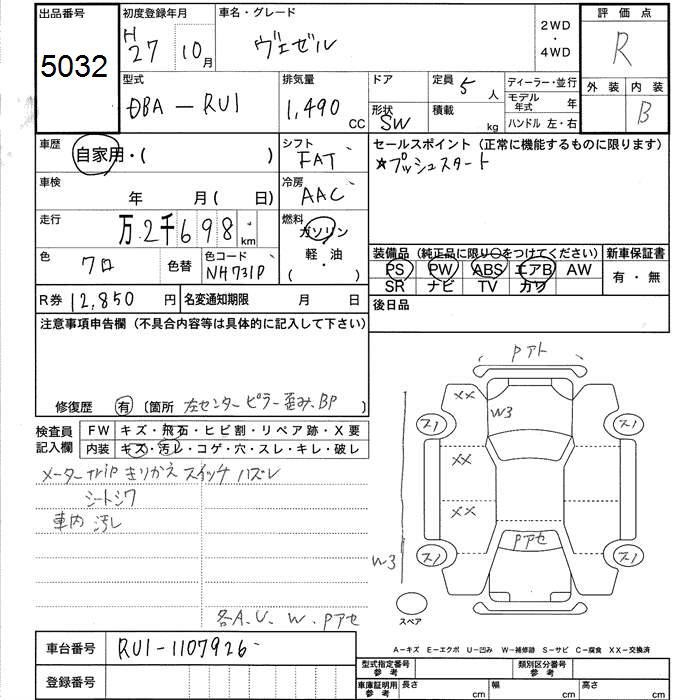 出品番号 初度登録年月 車名・グレード 2WD ・ 4WD 評価点
5032 H27 10月 ヴェゼル R
型式 排気量 ドア 定員 5人 ディーラー・並行 外装 内装
DBA－RU1 1,490 CC 形状 SW 積載 kg モデル年式 年 B
ハンドル 左・右
車歴 自家用・( ) シフト FAT セールスポイント (正常に機能するものに限ります)
☆プッシュスタート
車検 年 月 ( 日) 冷房 AAC
走行 万2千698 km 燃料 ガソリン 軽・油 ( ・ )
色 クロ 色替 色コード NH731P
装備品 (純正品に限り○をつけてください) 新車保証書
PS PW ABS エアB AW 有・無
SR ナビ TV カワ
R券 12,850 円 名変通知期限 月 日 後日品
注意事項申告欄 (不具合内容等は具体的に記入して下さい)
修復歴 有 〔箇所 左センターピラー歪み、BP 〕
検査員記入欄 FW キズ・飛石・ヒビ割・リペア跡・X要
内装 キズ・汚れ・コゲ・穴・スレ・キレ・破レ
メーターtripきりかえスイッチハズレ
シートシワ
車内汚レ
各A.U.W.Pアセ
Pアト
XX W3
スリ スリ
XX
XX
Pアセ
W3 スリ スリ
スペア
A－キズ E－エクボ U－凹み W－補修跡 S－サビ C－腐食 XX－交換済
車台番号 RU1-1107926
登録番号
型式指定番号 参考 類別区分番号 参考
車庫証明用 参考 長さ cm 幅 cm 高さ cm